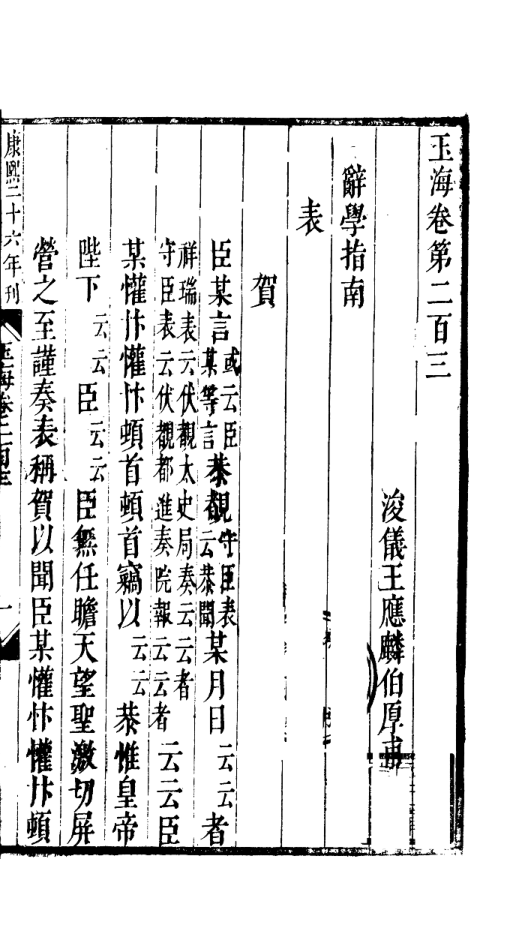 玉海卷第二百三
浚儀王應麟伯厚甫
辭學指南
表
賀
臣某言或云臣某等言恭覩守臣表云恭聞某月日云云者
祥瑞表云伏覩太史局奏云云者
守臣表云伏覩都進奏院報云云者云云臣
某懽忭懽忭頓首頓首竊以云云恭惟皇帝
陛下云云臣云云臣無任瞻天望聖激切屏
營之至謹奏表稱賀以聞臣某懽忭懽忭頓
康熙二十六年刊
玉海卷二百三
一